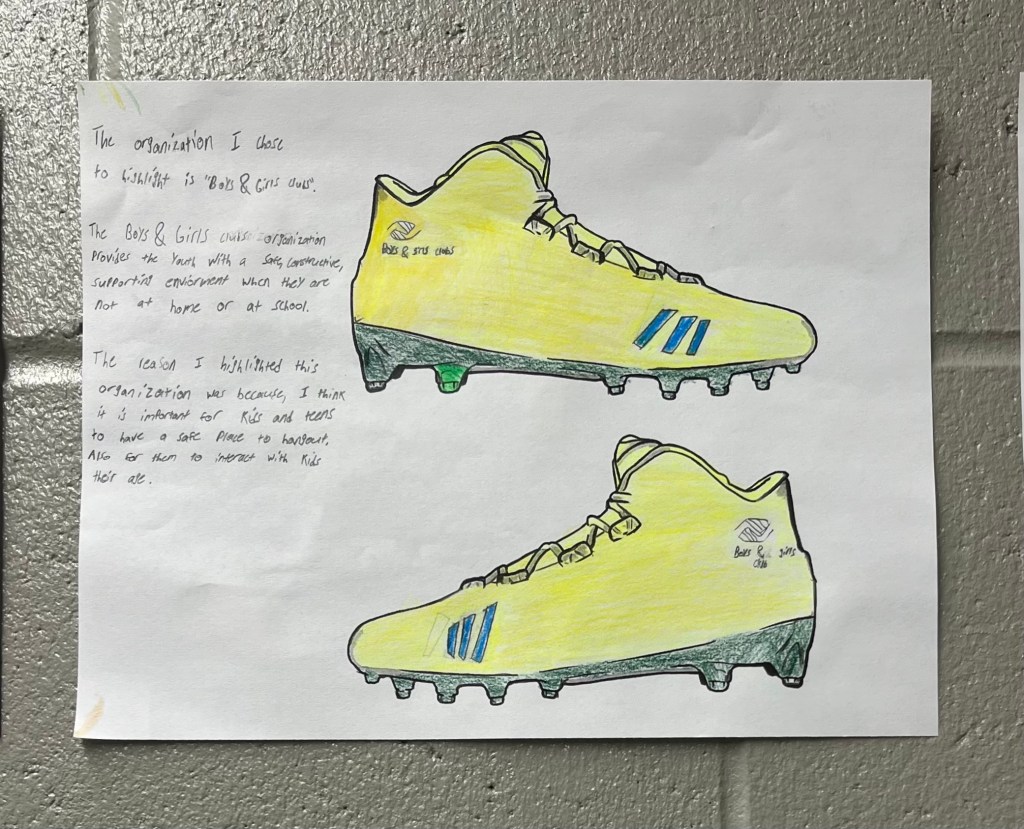 The organization I chose
to highlight is "Boys & Girls clubs".
The Boys & Girls clubs organization
Provides the Youth with a safe, constructive,
supporting enviorment when they are
not at home or at school.
The reason I highlighted this
organization was because, I think
it is important for kids and teens
to have a safe place to hangout,
Also for them to interact with kids
their age.
Boys & girls clubs
Boys & girls
club